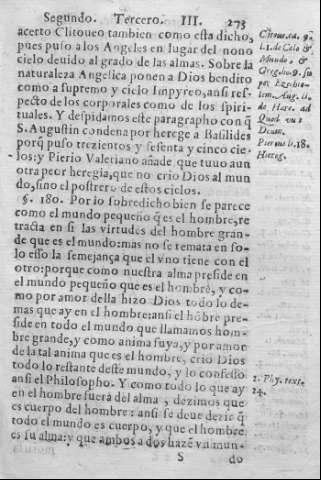 Segundo. Tercero. III. 273
acerto Clitoueo tambien como esta dicho,
pues puso a los Angeles en lugar del nono
cielo deuido al grado de las almas. Sobre la
naturaleza Angelica ponen a Dios bendito
como a supremo y cielo Impyreo, ansi res-
pecto de los corporales como de los spiri-
tuales. Y despidamos este paragrapho con q̃
S. Augustin condena por herege a Basilides
porq̃ puso trezientos y sesenta y cinco cie-
los: y Pierio Valeriano añade que tuuo aun
otra peor heregia, que no crio Dios al mun
do, sino el postrero de estos cielos.
§. 180. Por lo sobredicho bien se parece
como el mundo pequeño q̃ es el hombre, re
tracta en si las virtudes del hombre gran-
de que es el mundo: mas no se remata en so-
lo esso la semejança que el vno tiene con el
otro: porque como nuestra alma preside en
el mundo pequeño que es el hombre, y co-
mo por amor della hizo Dios todo lo de-
mas que ay en el hombre: ansi el hõbre pre-
side en todo el mundo que llamamos hom-
bre grande, y como anima suya, y por amor
de la tal anima que es el hombre, crio Dios
todo lo restante deste mundo, y lo confesso
ansi el Philosopho. Y como todo lo que ay
en el hombre fuera del alma, dezimos que
es cuerpo del hombre: ansi se deue dezir q̃
todo el mundo es cuerpo, y que el hombre
es su alma: y que ambos a dos hazẽ vn mun-
S do
Clitoue. in. 9.
l. 1. de Cœlo &
Mundo. &
Grego. ho. 9. su
per Ezechie-
lem. Aug. li.
de Hære. ad
Quod vult
Deum.
Pierius li. 18.
Hierog.
2. Phy. text.
24.